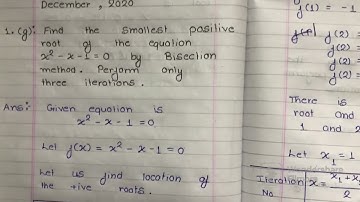 December, 2020
1.(g): Find the smallest positive
root of the equation
x² - x - 1 = 0 by Bisection
method. Perform only
three iterations.
Ans:- Given equation is
x² - x - 1 = 0
Let f(x) = x² - x - 1 = 0
Let us find location of
the +ive roots.
f(1) = -1
f(2) =
f(2)
f(2)
There is
root and
1 and 2
Let x₁ = 1
Iteration
No.
x = x₁ + x
2